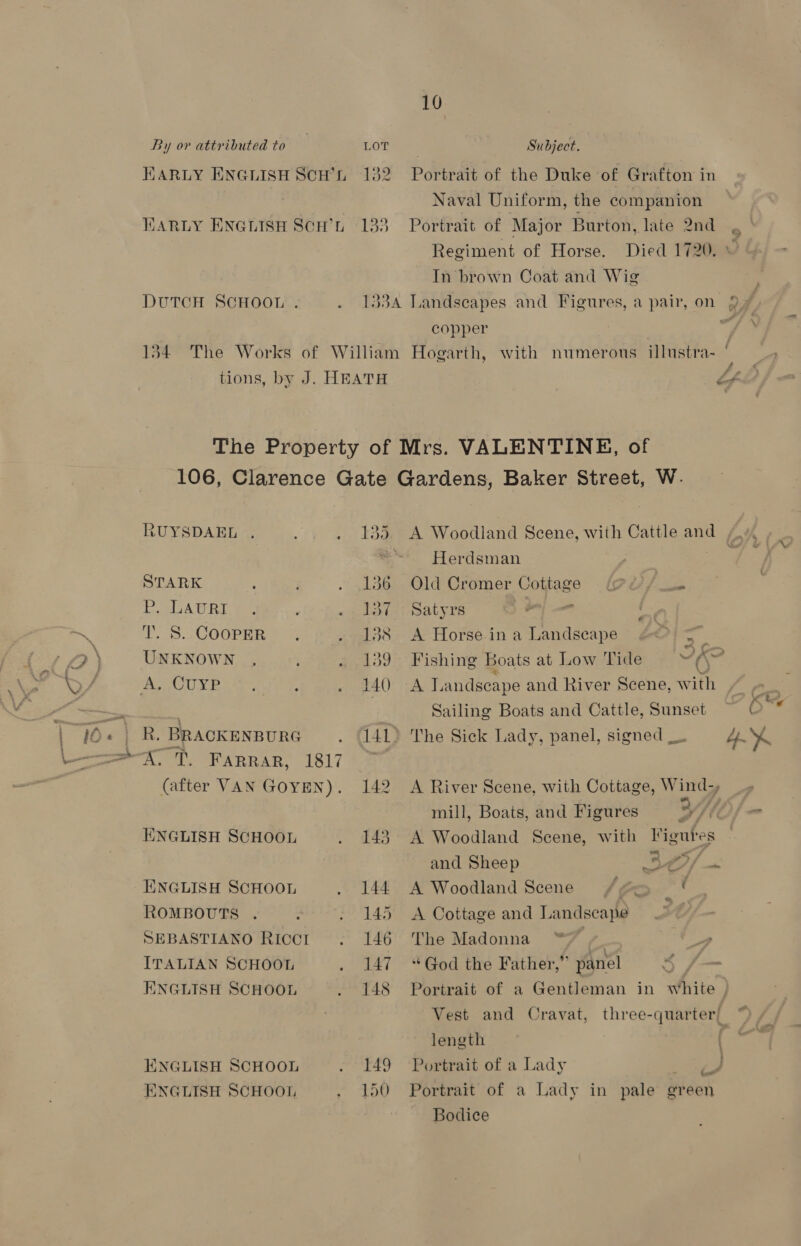 10
By or attributed to LOT Subject.
EARLY ENGLISH SCH'L 132 Portrait of the Duke of Grafton in
Naval Uniform, the companion
EARLY ENGLISH SCH'L 133 Portrait of Major Burton, late 2nd
Regiment of Horse. Died 1720.
In brown Coat and Wig
DUTCH SCHOOL . . 133A Landscapes and Figures, a pair, on
copper
134 The Works of William Hogarth, with numerous illustra-
tions, by J. HEATH
The Property of Mrs. VALENTINE, of
106, Clarence Gate Gardens, Baker Street, W.
RUYSDAEL . . . 135 A Woodland Scene, with Cattle and
Herdsman
STARK . . . 136 Old Cromer Cottage
P. LAURI . . . 137 Satyrs
T. S. COOPER . . 138 A Horse in a Landscape
UNKNOWN . . . 139 Fishing Boats at Low Tide
A. CUYP . . . 140 A Landscape and River Scene, with
Sailing Boats and Cattle, Sunset
R. BRACKENBURG . 141 The Sick Lady, panel, signed
A. T. FARRAR, 1817
(after VAN GOYEN). 142 A River Scene, with Cottage, Wind-
mill, Boats, and Figures
ENGLISH SCHOOL . 143 A Woodland Scene, with Figures
and Sheep
ENGLISH SCHOOL . 144 A Woodland Scene
ROMBOUTS . . . 145 A Cottage and Landscape
SEBASTIANO RICCI . 146 The Madonna
ITALIAN SCHOOL . 147 "God the Father," panel
ENGLISH SCHOOL . 148 Portrait of a Gentleman in white
Vest and Cravat, three-quarter
length
ENGLISH SCHOOL . 149 Portrait of a Lady
ENGLISH SCHOOL . 150 Portrait of a Lady in pale green
Bodice